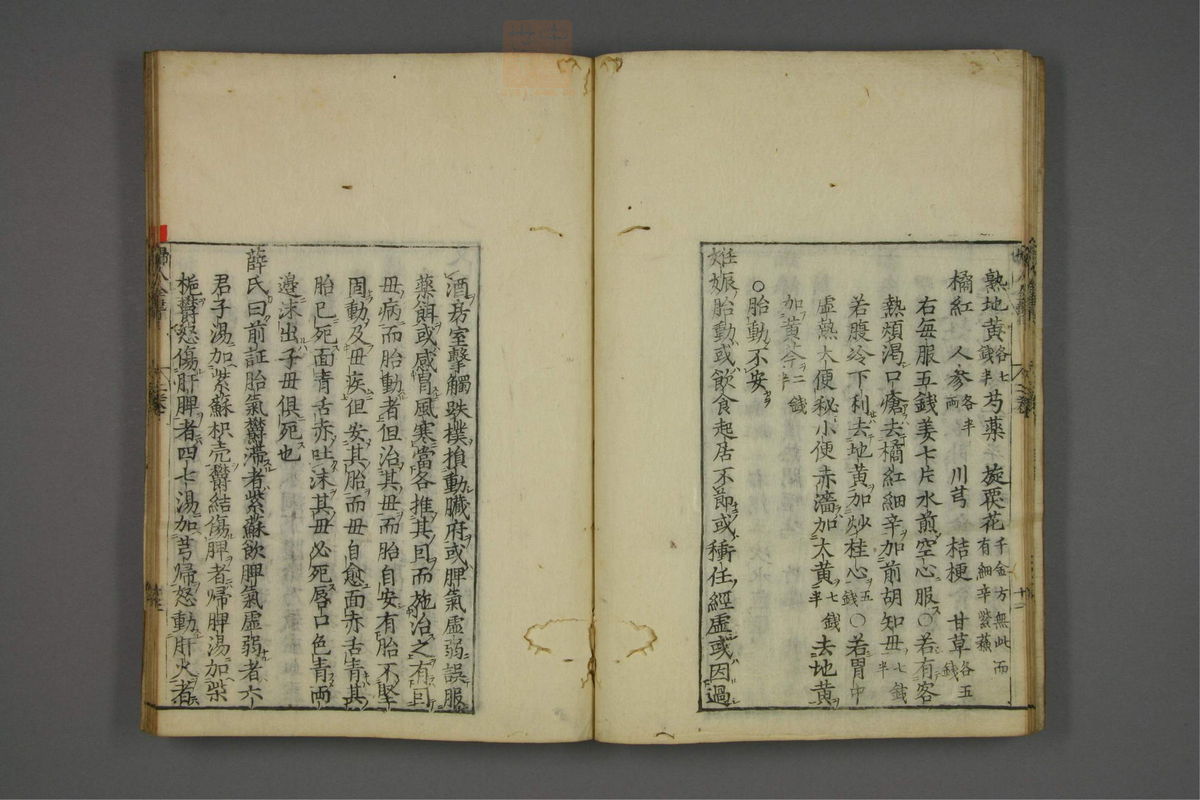 熟地黄各七錢半芍藥 旋覆花千金方無此而有細辛紫蘇
橘紅 人參各半兩 川芎 桔梗 甘草各五錢
右每服五錢姜七片水煎空心服〇若有客
熱煩渴口瘡去橘紅細辛加前胡知毋七錢半
若腹冷下利去地黄加炒桂心五錢〇若胃中
虛熱大便秘小便赤濇加大黄七錢半去地黄
加黄芩二錢半
〇胎動不安
妊娠胎動或飲食起居不節或衝任經虛或因過
酒房室擊觸跌撲損動臟府或脾氣虛弱誤服
藥餌或感冒風寒當各推其因而施治之有因
毋病而胎動者但治其毋而胎自安有胎不堅
固動及毋疾但安其胎而毋自愈面赤舌青其
胎已死面青舌赤吐沫其毋必死唇口色青兩
邊沫出子毋俱死也
薛氏曰前証胎氣欝滯者紫蘇飲脾氣虛弱者六
君子湯加紫蘇枳壳欝結傷脾者歸脾湯加柴
梔欝怒傷肝脾者四七湯加芎歸怒動肝火者